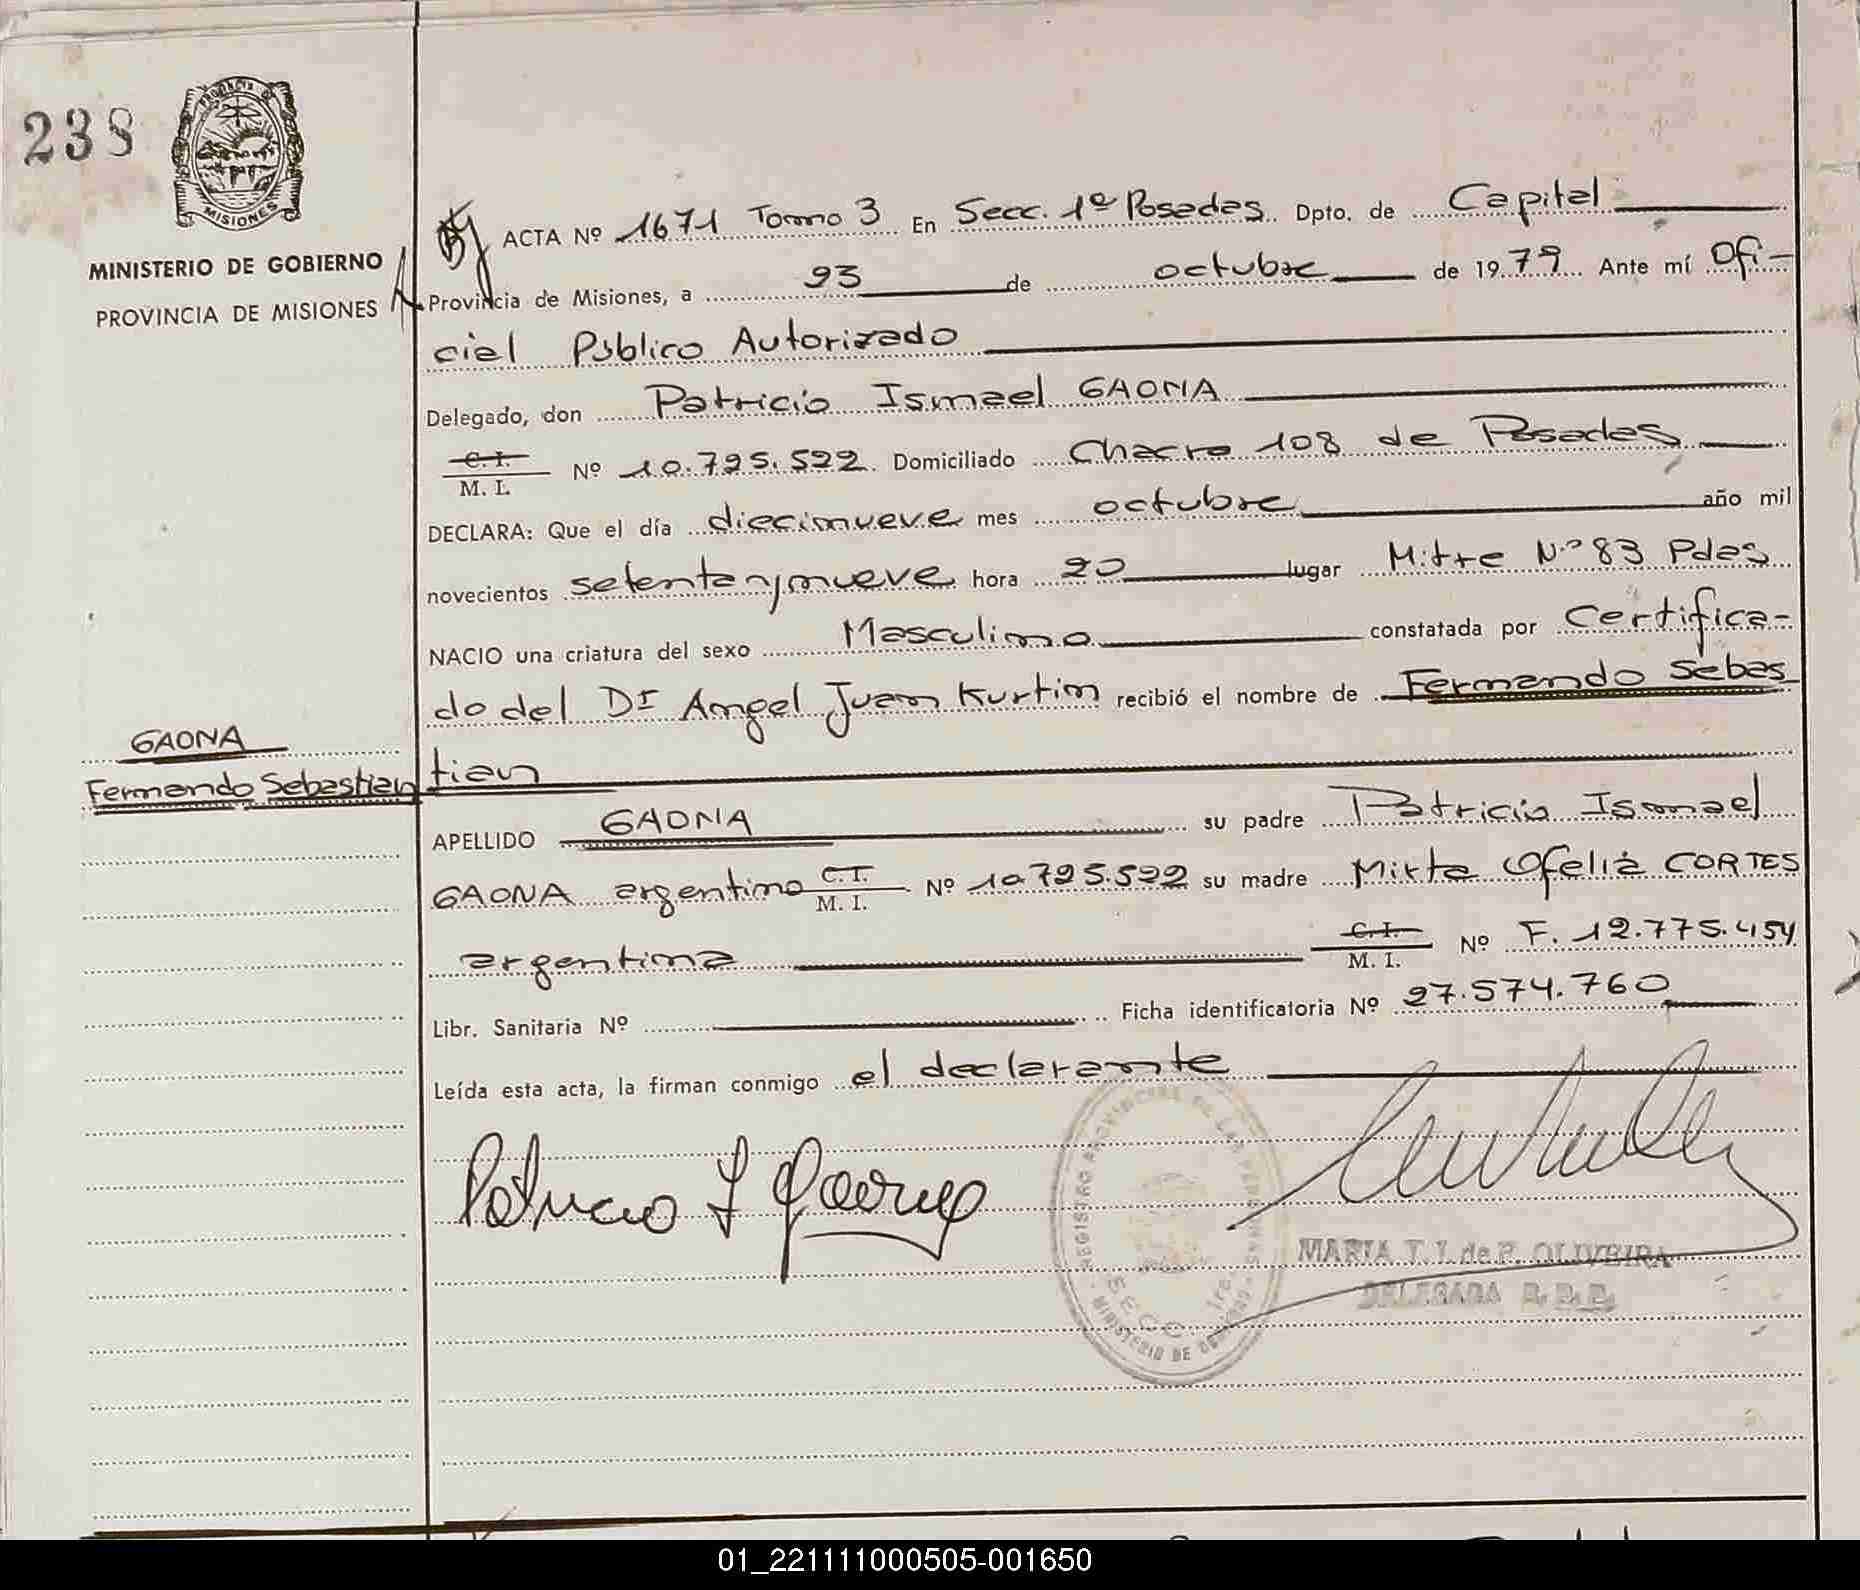 238
PROVINCIA DE
MISIONES
MINISTERIO DE GOBIERNO
PROVINCIA DE MISIONES
ACTA Nº 1671 Tomo 3 En Secc. 1º Posadas Dpto. de Capital
Provincia de Misiones, a 23 de octubre de 1979 Ante mí Ofi-
cial Público Autorizado
Delegado, don Patricio Ismael GAONA
C. I.
M. I. Nº 10.725.522 Domiciliado Chacra 108 de Posadas
DECLARA: Que el día diecinueve mes octubre año mil
novecientos setentaynueve hora 20 lugar Mitre Nº 83 Pdas
NACIO una criatura del sexo Masculino constatada por Certifica-
do del Dr Angel Juan Kurtin recibió el nombre de Fernando Sebas
tian
GAONA
Fernando Sebastian
APELLIDO GAONA su padre Patricio Ismael
GAONA argentino C.I.
M. I. Nº 10.725.522 su madre Mirta Ofelia CORTES
argentina C. I.
M. I. Nº F. 12.775.454
Libr. Sanitaria Nº Ficha identificatoria Nº 27.574.760
Leída esta acta, la firman conmigo el declarante
Patricio I Gaona
REGISTRO PROVINCIAL DE LAS PERSONAS
SECC. 1ra.
MINISTERIO DE GOBIERNO
MARIA T. I. de F. OLIVEIRA
DELEGADA
01_221111000505-001650